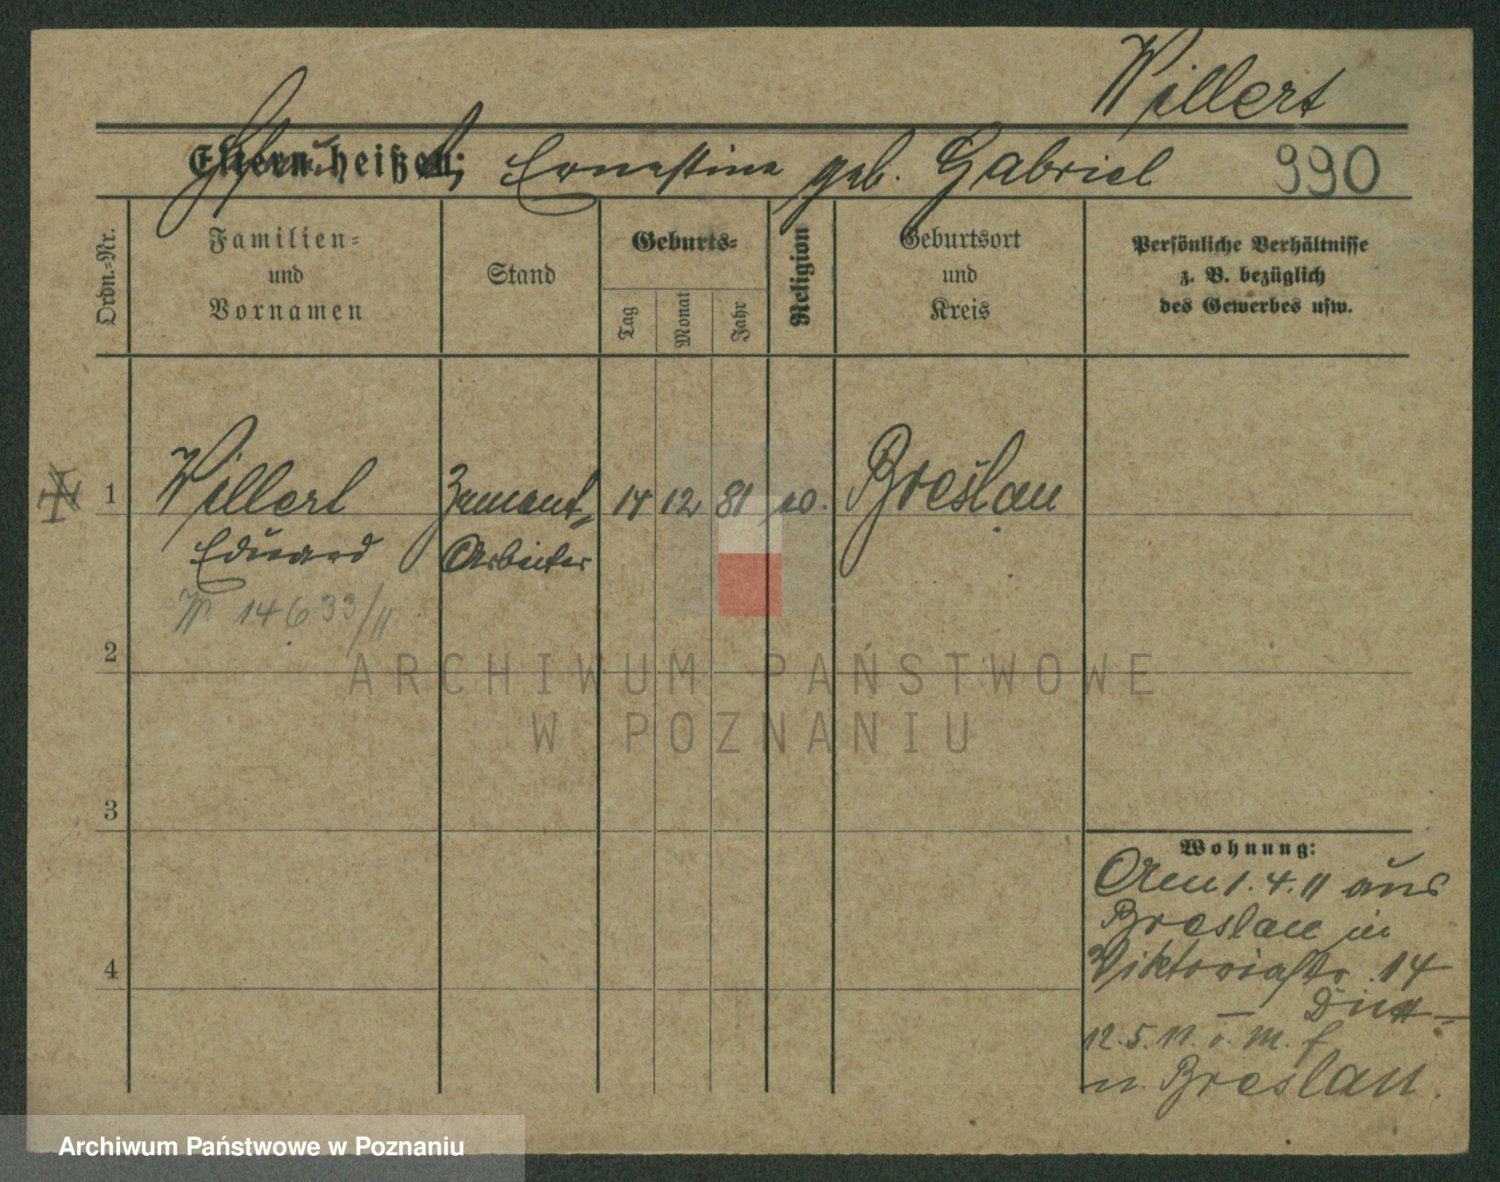 Willert
Eltern heißen: Ernestine geb. Gabriel 990
Ordn.-Nr.
Familien-
und
Vornamen
Stand
Geburts-
Tag
Monat
Jahr
Religion
Geburtsort
und
Kreis
Persönliche Verhältnisse
z. B. bezüglich
des Gewerbes usw.
1 Willert Zement- 14 12 81 Breslau
Eduard Arbeiter
14633/11
2
ARCHIWUM PAŃSTWOWE
W POZNANIU
3
Wohnung:
Am 1.4.11 aus
Breslau in
Viktoriastr. 14
4
12.5.11. o. M. f
n. Breslau.
Archiwum Państwowe w Poznaniu